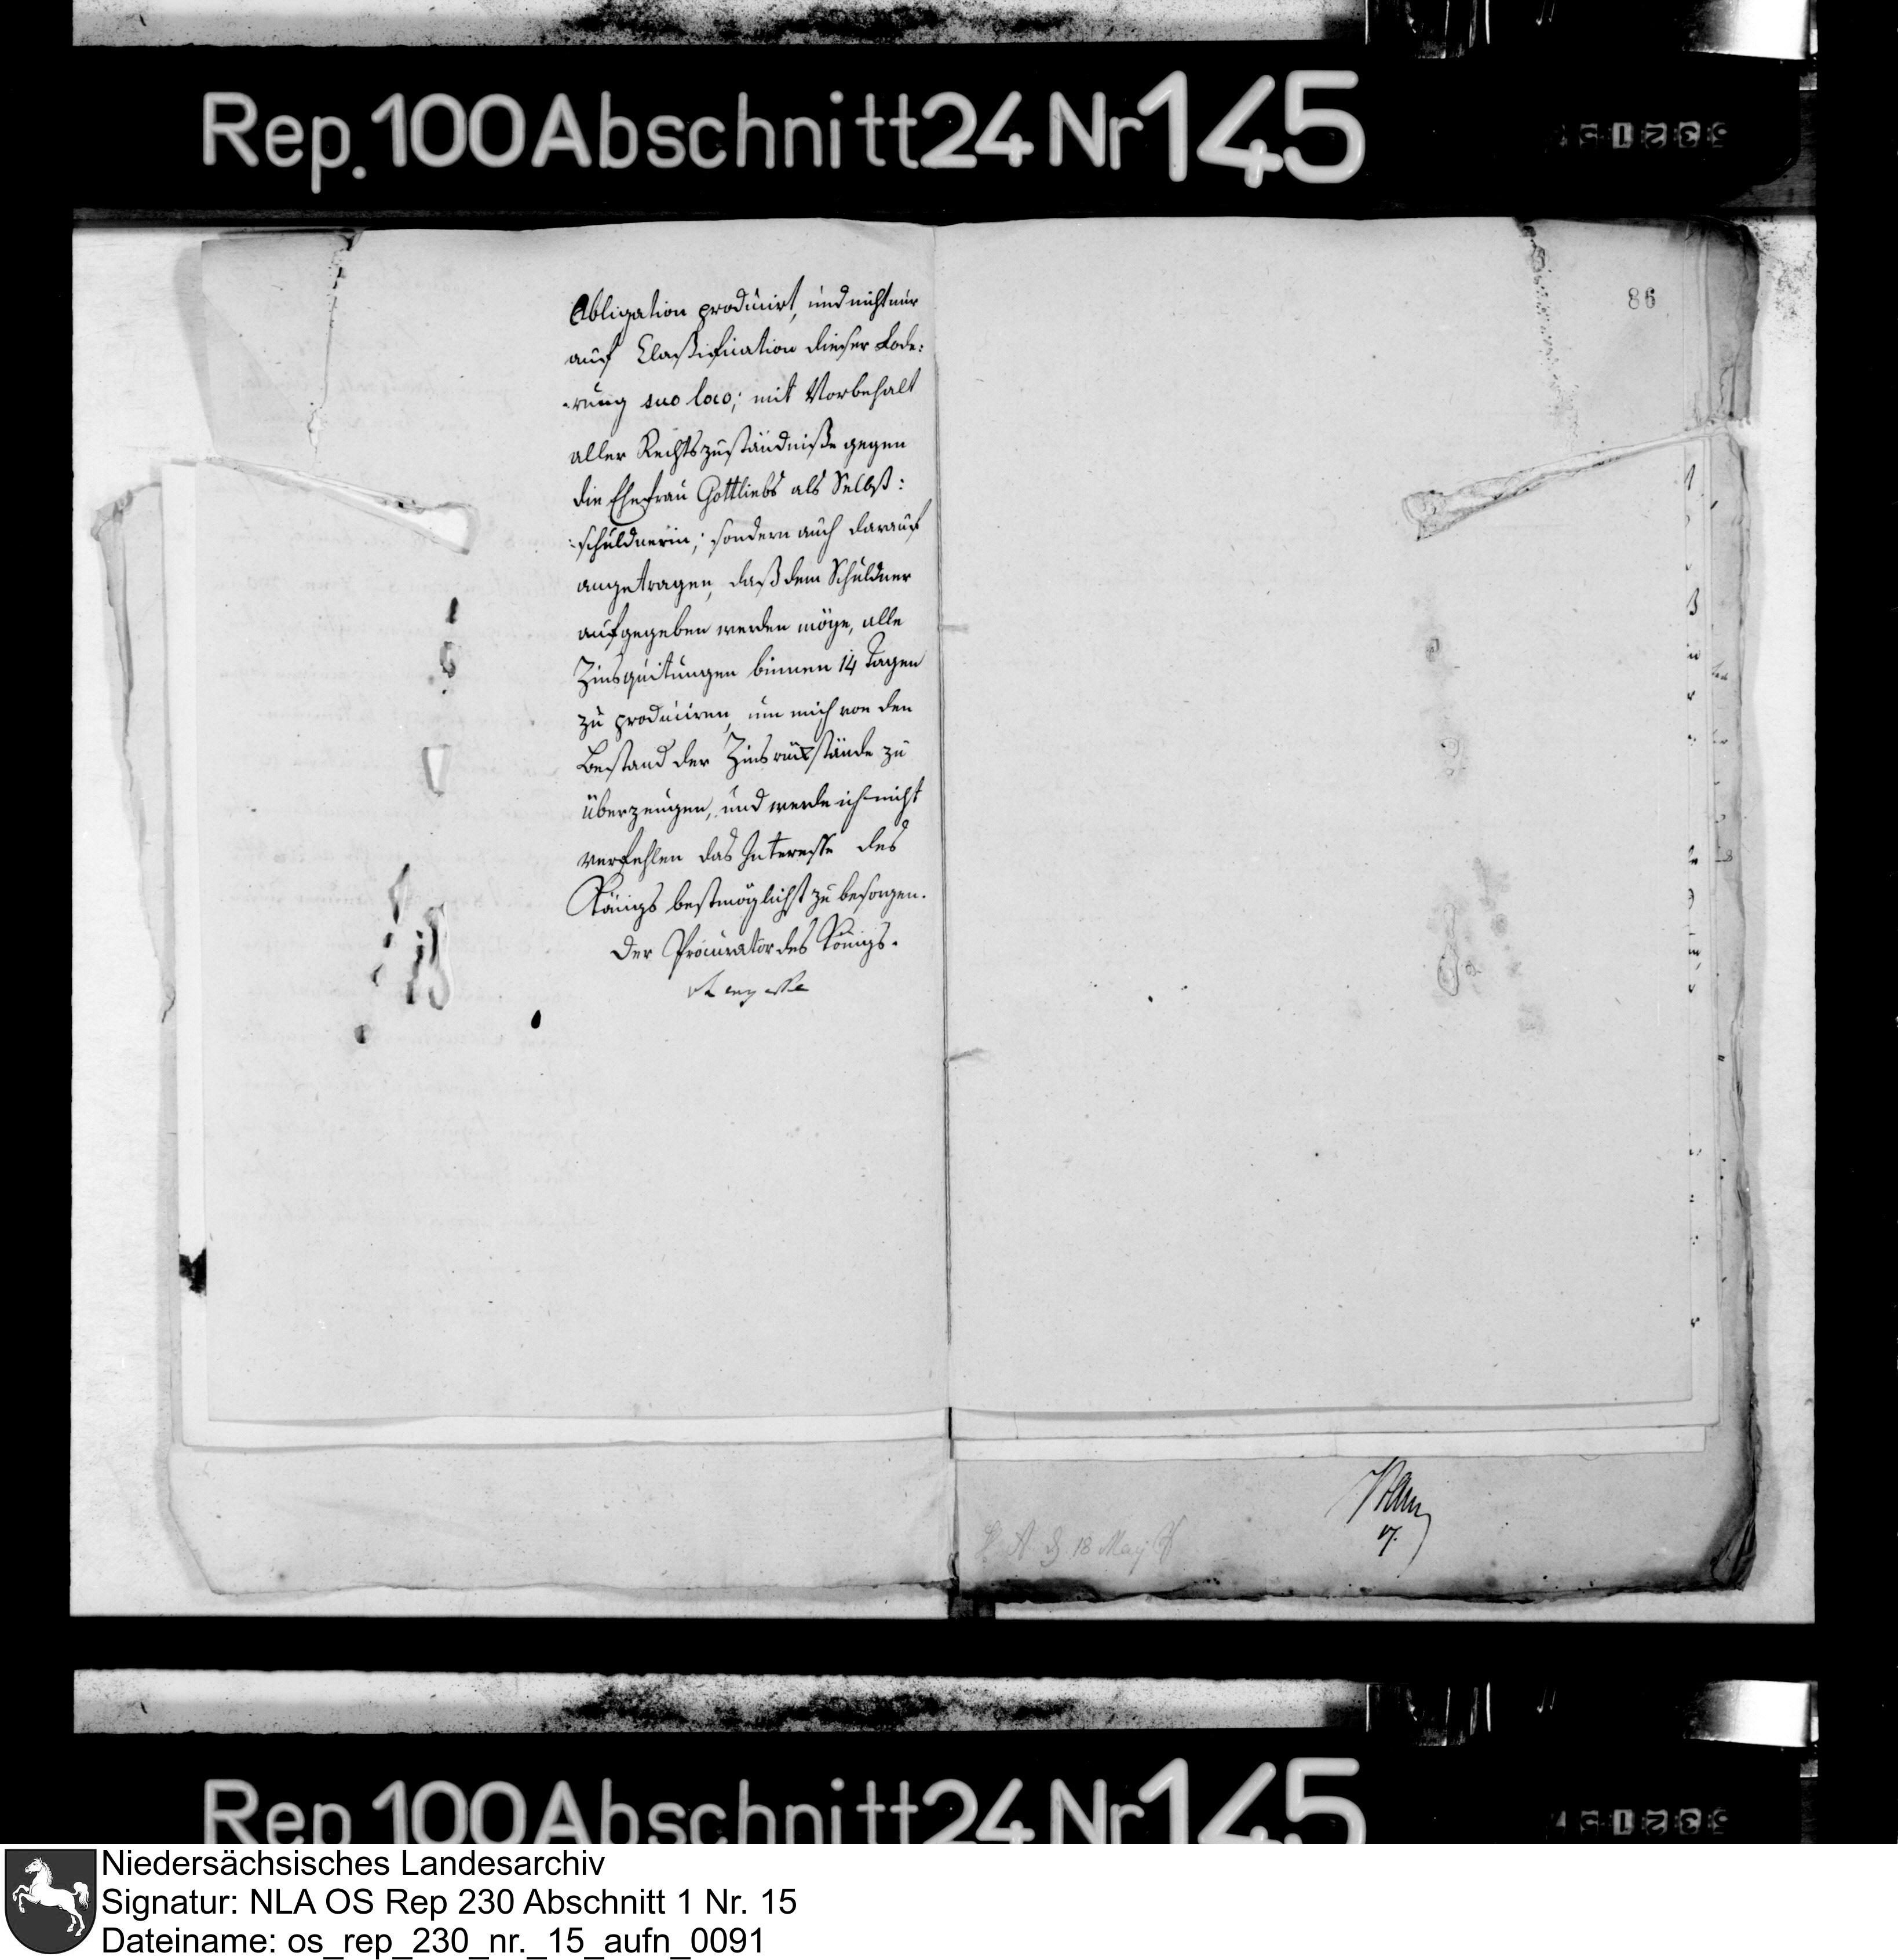 Rep. 100 Abschnitt 24 Nr 145
86
Obligation producirt, und nicht nur
auf Claßification dieser Fode:
:rung suo loco; mit Vorbehalt
aller Rechtszuständniße gegen
die Ehefrau Gottliebs als Selbst:
:schuldnerin; sondern auch darauf
angetragen, daß dem Schuldner
aufgegeben werden möge, alle
Zinsquitungen binnen 14 Tagen
zu produciren, um mich von den
Bestand der Zinsrückstände zu
überzeugen, und werde ich nicht
verfehlen das Interesse des
Königs bestmöglichst zu besorgen.
Der Procurator des Königs.
18 May
Rep 100 Abschnitt 24 Nr 145
Niedersächsisches Landesarchiv
Signatur: NLA OS Rep 230 Abschnitt 1 Nr. 15
Dateiname: os_rep_230_nr._15_aufn_0091